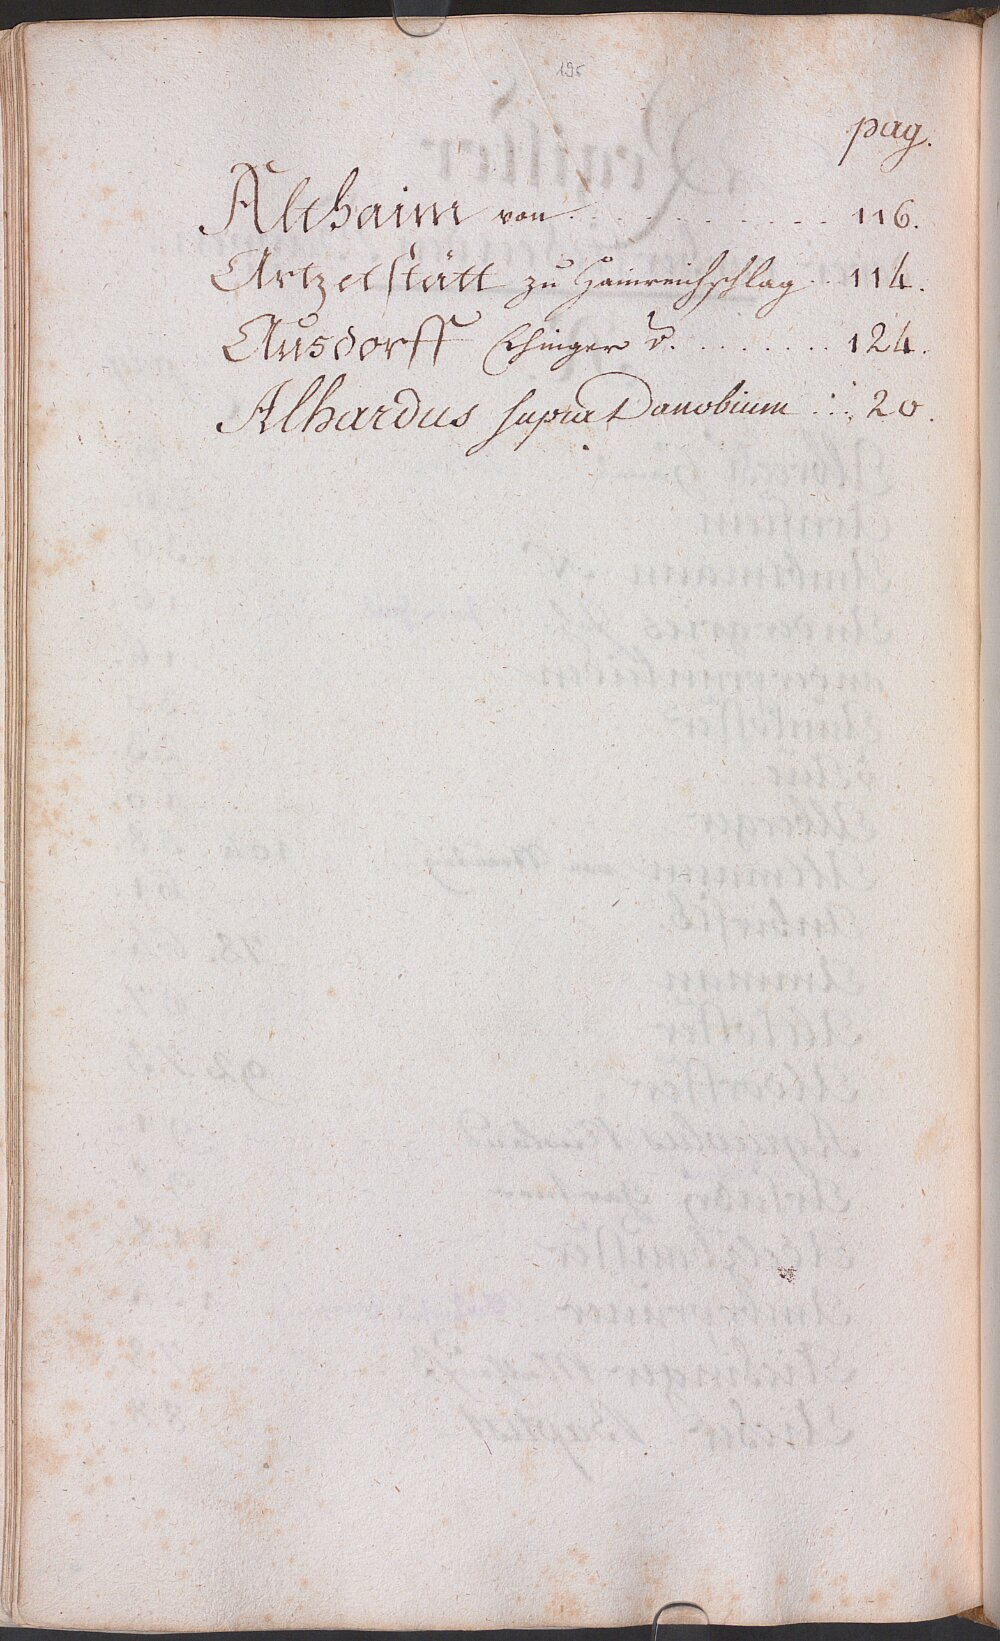 195
pag.
Althaim von . . . . . . . . . . . 116.
Artzetstätt zu Hainreichschlag . . 114.
Ausdorff Ehinger v. . . . . . . . 124.
Alhardus supra Danobium . . . 20.